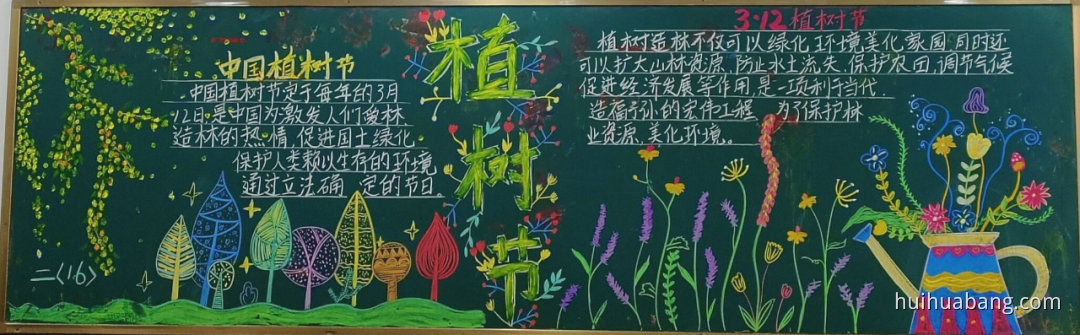 中国植树节
中国植树节定于每年的3月
12日是中国为激发人们爱林
造林的热情,促进国土绿化
保护人类赖以生存的环境
通过立法确 定的节日。
二〈16〉
植
树
节
3·12植树节
植树造林不仅可以绿化环境美化家园同时还
可以扩大山林资源、防止水土流失、保护农田,调节气候
促进经济发展等作用,是一项利于当代.
造福子孙的宏伟工程 为了保护林
业资源,美化环境。
huihuabang.com